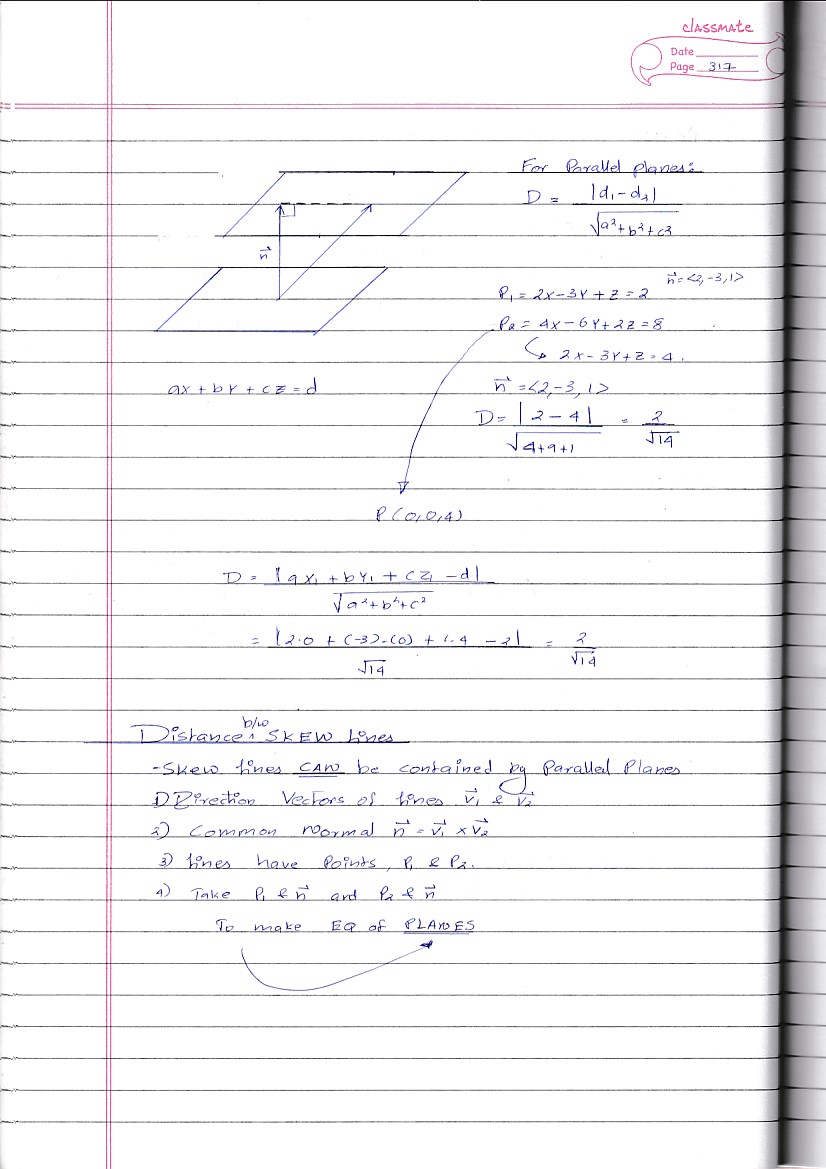 classmate
Date
Page 317
For Parallel planes:
D = |d₁-d₂|
√a²+b²+c²
n⃗
n⃗=<2,-3,1>
P₁ = 2x-3Y+z=2
P₂ = 4x-6Y+2z=8
↳ 2x-3Y+z=4.
ax+bY+cz=d
n⃗ = <2,-3,1>
D = |2-4| = 2
√4+9+1 √14
P(0,0,4)
D = |ax₁ + bY₁ + cz₁ - d|
√a²+b²+c²
= |2.0 + (-3).(0) + 1.4 - 2| = 2
√14 √14
Distance b/w SKEW Lines
-Skew Lines CAN be contained by Parallel Planes
1) Direction Vectors of Lines v⃗₁ & v⃗₂
2) Common Normal n⃗ = v⃗₁ x v⃗₂
3) Lines have Points, P₁ & P₂.
4) Take P₁ & n⃗ and P₂ & n⃗
To make EQ of PLANES